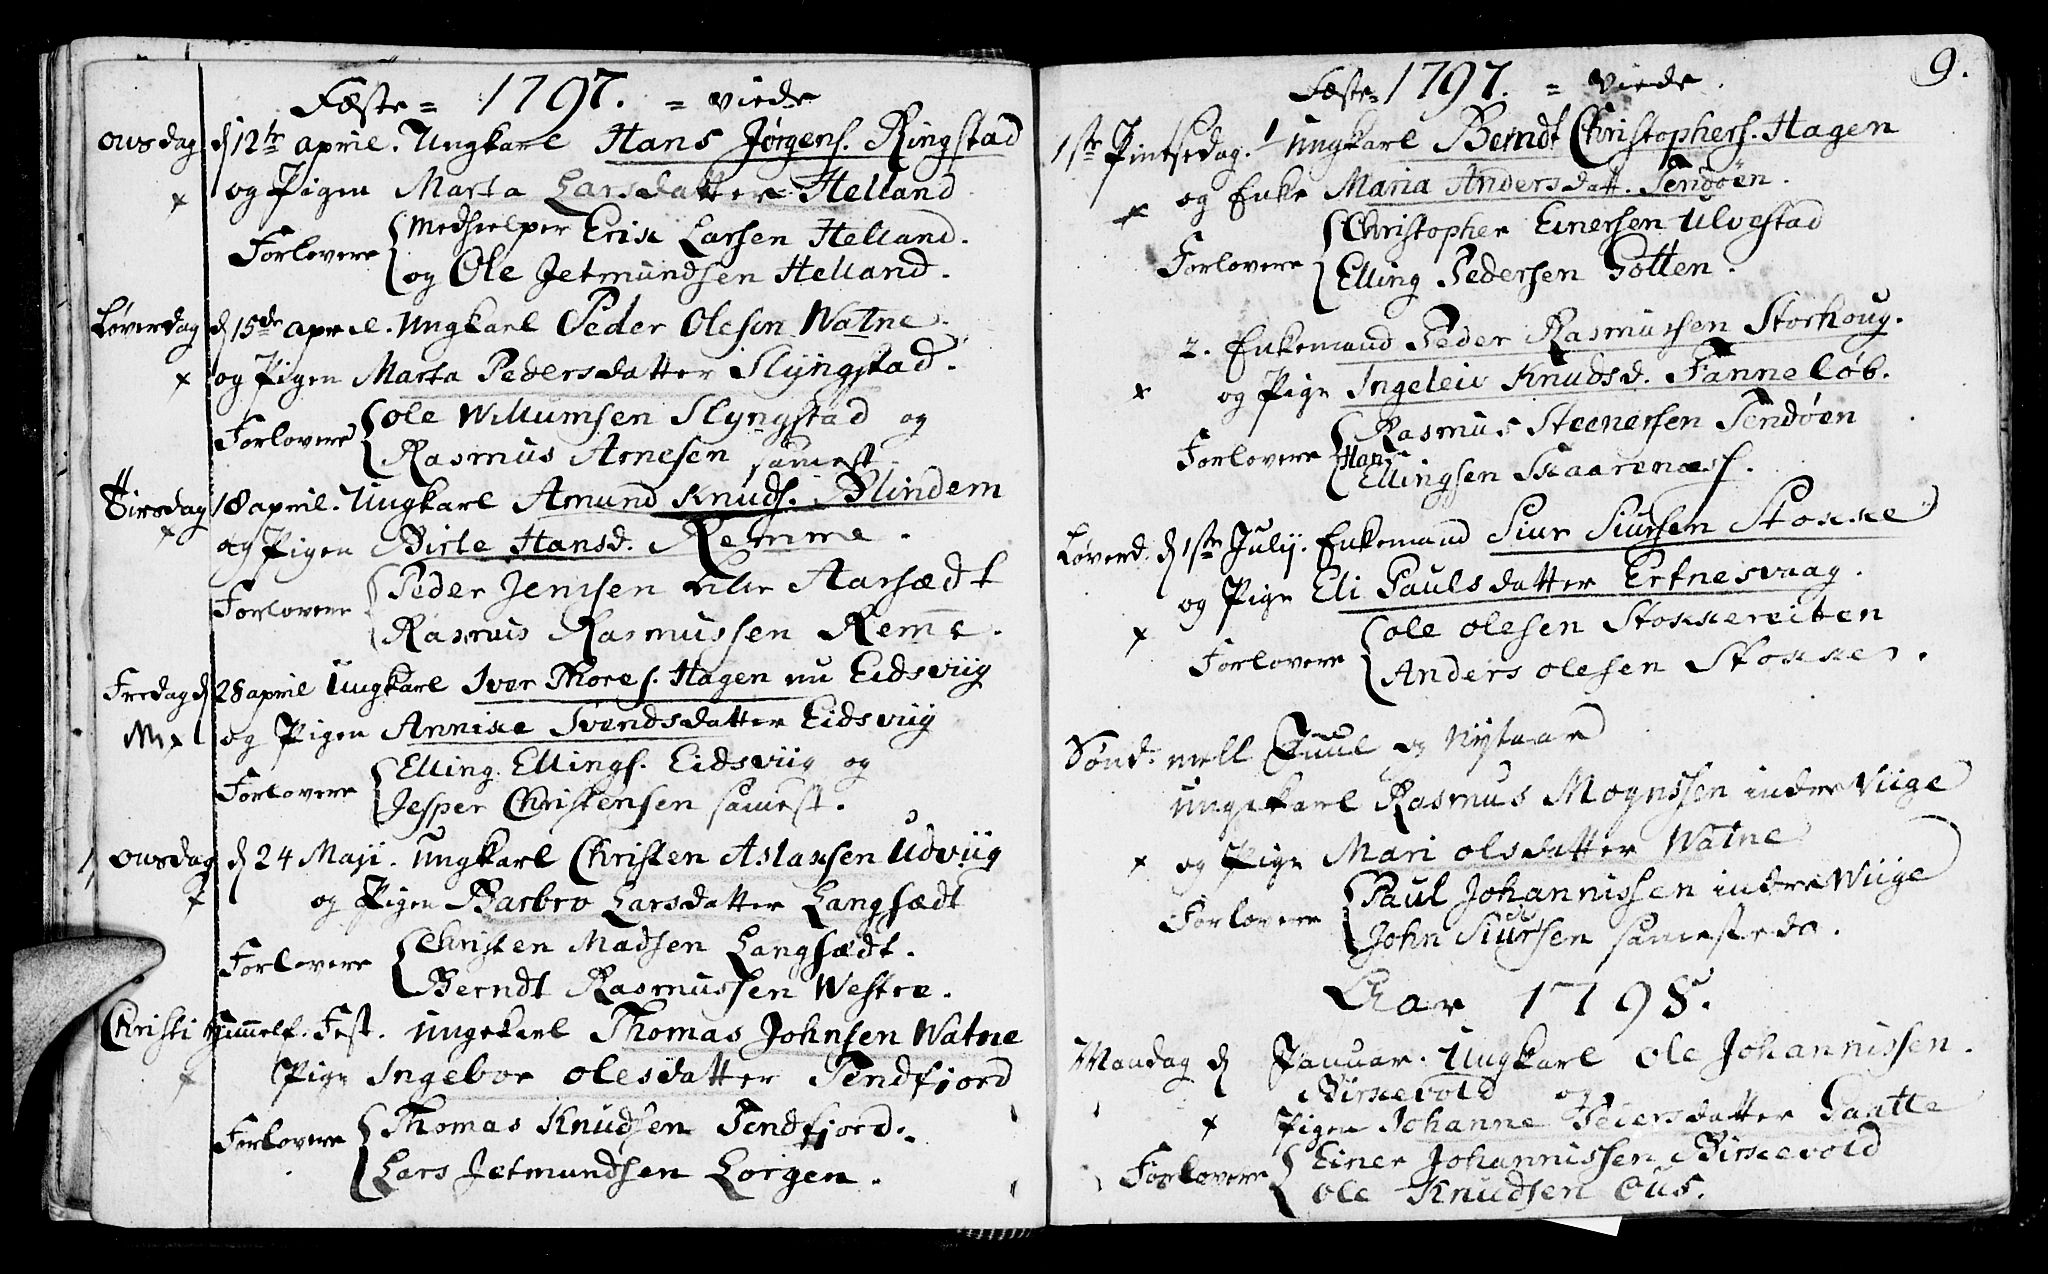 Fæste = 1797. = viede
Onsdag d 12te april. Ungkarl Hans Jørgens. Ringstad
og Pigen Marta Larsdatter Helland
Forlovere Medhielper Erik Larsen Helland.
og Ole Jetmundsen Helland.
Løverdag d 15de april. Ungkarl Peder Olesen Watne.
og Pigen Marta Pedersdatter Slyngstad.
Forlovere Ole Willumsen Slyngstad og
Rasmus Arnesen samest.
Tirsdag 18 april. Ungkarl Amund Knuds. Blindem
og Pigen Birte Hansd. Remme.
Forlovere Peder Jensen Aarsædt
Rasmus Rasmussen Remme.
Fredag d 28 april Ungkarl Iver Thores. Hagen nu Eidsviig
og Pigen Annike Svendsdatter Eidsviig
Forlovere Elling Ellings. Eidsviig og
Jesper Christensen samest.
Onsdag d 24 Maji. Ungkarl Christen Aslaksen Udviig
og Pigen Barbro Larsdatter Langsædt
Forlovere Christen Madsen Langsædt.
Berndt Rasmussen Westre.
Christi Himmelf. Fest. Ungekarl Thomas Johnsen Watne
Pige Ingebor Olesdatter Tendfjord
Forlovere Thomas Knudsen Tendfjord.
Lars Jetmundsen Lorgen.
9.
Fæste = 1797. = viede.
1ste Pintsedag. 1 Ungkarl Berndt Christophers. Hagen
og Enke Maria Andersdatt. Sendøen.
Forlovere Christopher Einersen Ulvestad
Elling Pedersen Gotten.
2. Enkemand Peder Rasmussen Storhoug.
og Pige Ingeleiv Knudsd. Fanneløb.
Forlovere Rasmus Steenersen Sendøen
Hans
Ellingsen Skaarenæss.
Løverd. d 1ste Julij. Enkemand Siur Siursen Stokke
og Pige Eli Paulsdatter Erknesvaag.
Forlovere Ole Olesen Stokkereiten
Anders Olesen Stokke.
Sønd. mell Juul og Nytaar
Ungekarl Rasmus Mognssen indre Viige
og Pige Mari Olsdatter Watne
Forlovere Paul Johannissen indre Wiige
John Siursen samesteds.
Aar 1798.
Mandag d Januar. Ungkarl Ole Johannissen.
Birkevold og
Pigen Johanne Peiersdatter Gaatte
Forlovere Einer Johannissen Birkevold
Ole Knudsen Ous.